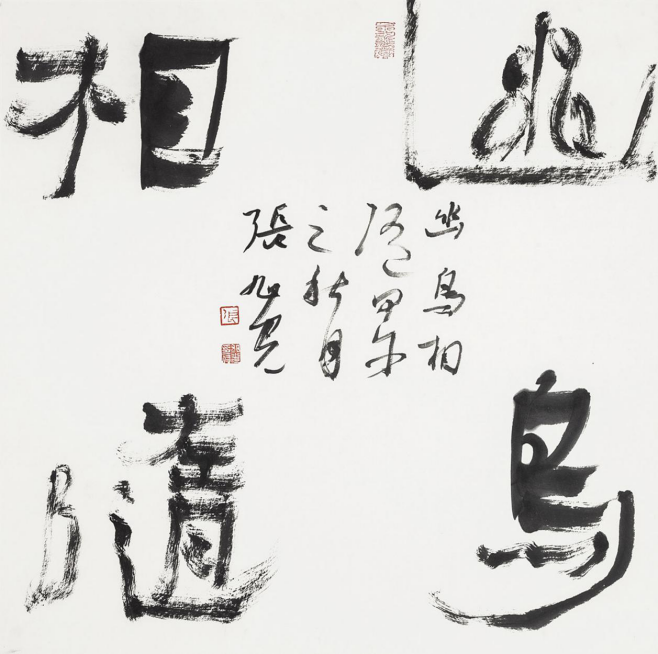 幽鳥
相隨
幽鳥相
隨甲午
之秋月
張旭光
張